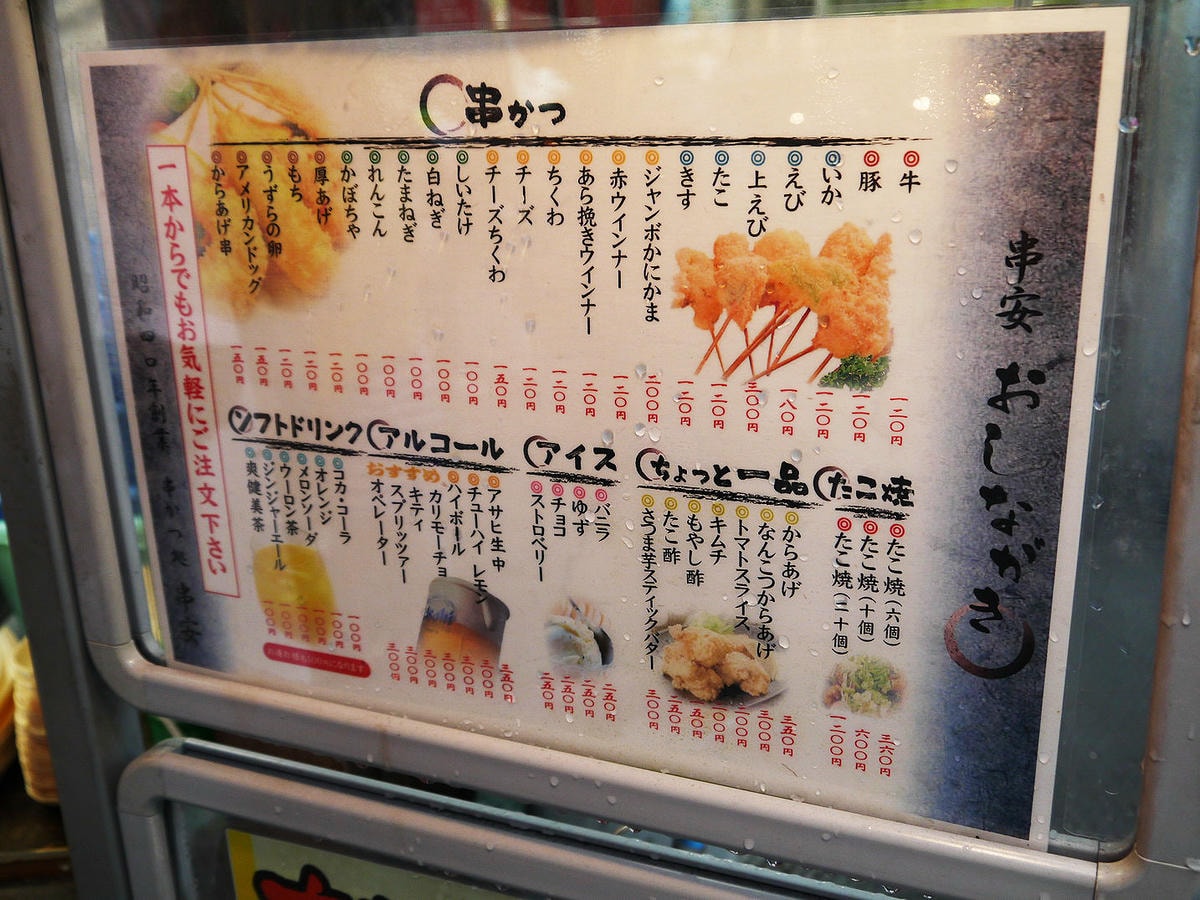 串安 おしながき
串かつ
牛 一二〇円
豚 一二〇円
いか 一二〇円
えび 一八〇円
上えび 三〇〇円
たこ 一二〇円
きす 一二〇円
ジャンボかにかま 二〇〇円
赤ウインナー 一二〇円
あら挽きウインナー 一二〇円
ちくわ 一二〇円
チーズ 一二〇円
チーズちくわ 一五〇円
しいたけ 一〇〇円
白ねぎ 一〇〇円
たまねぎ 一〇〇円
れんこん 一〇〇円
かぼちゃ 一〇〇円
厚あげ 一二〇円
もち 一二〇円
うずらの卵 一二〇円
アメリカンドッグ 一五〇円
からあげ串 一五〇円
たこ焼
たこ焼(六個) 三六〇円
たこ焼(十個) 六〇〇円
たこ焼(二十個) 一二〇〇円
ちょっと一品
からあげ 三五〇円
なんこつからあげ 三〇〇円
トマトスライス
キムチ
もやし酢
たこ酢 二五〇円
さつま芋スティックバター 三〇〇円
アイス
バニラ 二五〇円
ゆず 二五〇円
チョコ 二五〇円
ストロベリー 二五〇円
アルコール
アサヒ生中 三五〇円
チューハイ レモン 三〇〇円
ハイボール 三〇〇円
おすすめ
カリモーチョ 三〇〇円
キティ 三〇〇円
スプリッツァー 三〇〇円
オペレーター 三〇〇円
ソフトドリンク
コカ・コーラ 一〇〇円
オレンジ 一〇〇円
メロンソーダ 一〇〇円
ウーロン茶 一〇〇円
ジンジャーエール 一〇〇円
爽健美茶 一〇〇円
一本からでもお気軽にご注文下さい
昭和四〇年創業 串かつ処 串安